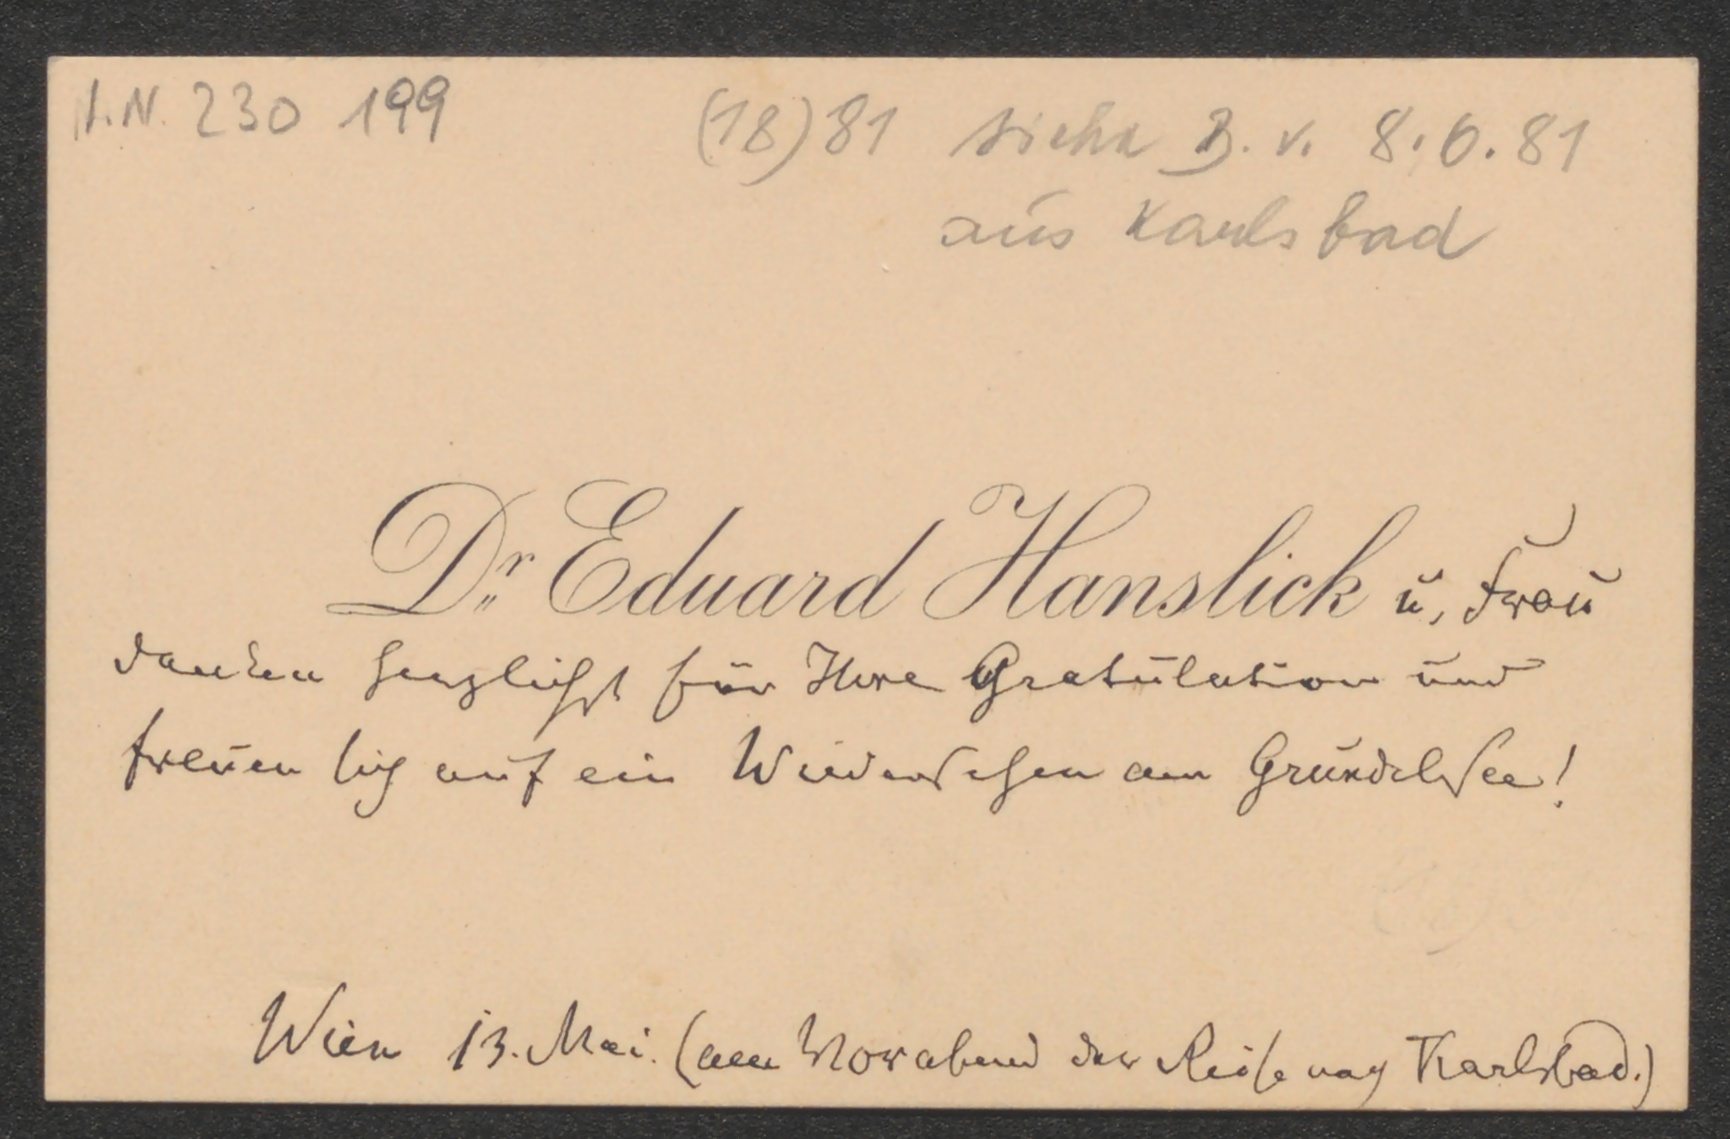 I.N. 230 199
(18)81 siehe B. v. 8.6.81
aus Karlsbad
Dr. Eduard Hanslick u, Frau
danken herzlichst für Ihre Gratulation und
freuen sich auf ein Wiedersehen am Grundelsee!
Wien 13. Mai. (am Vorabend der Reise nach Karlsbad.)